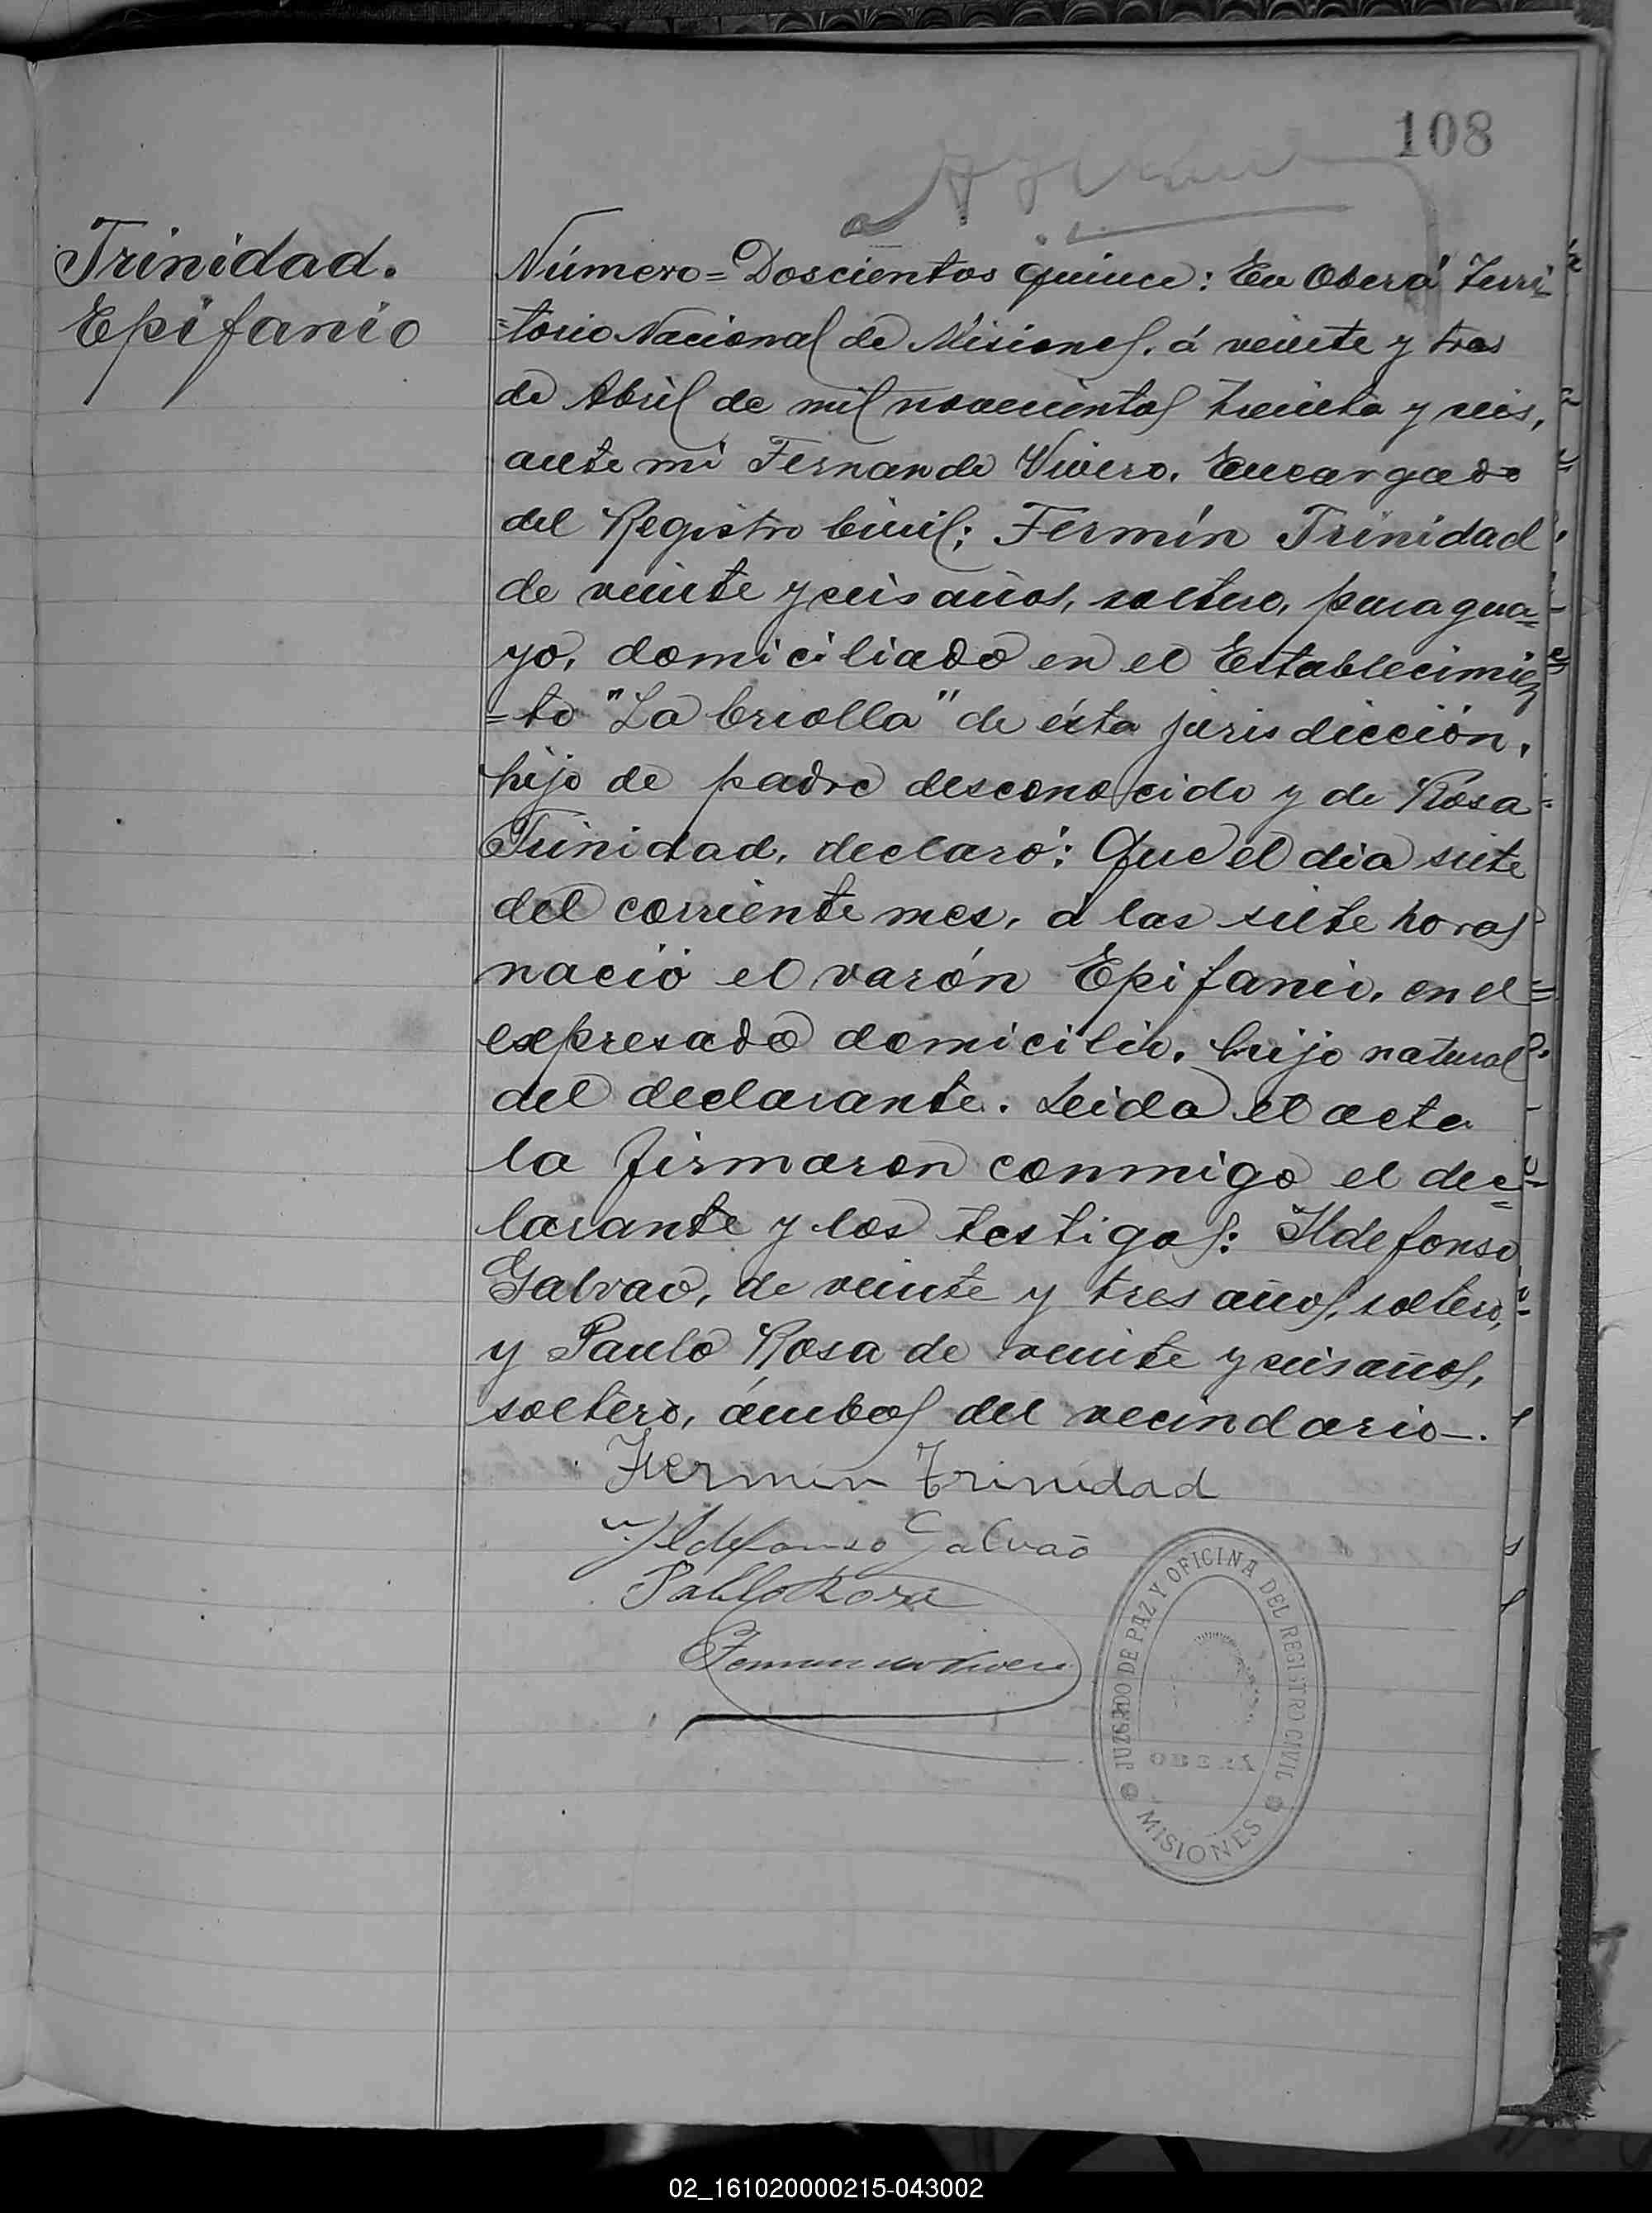 108
Trinidad.
Epifanio
Número = Doscientos quince: En Oberá Terri-
=torio Nacional de Misiones, á veinte y tres
de Abril de mil novecientos treinta y seis,
ante mi Fernando Vivero, Encargado
del Registro Civil; Fermín Trinidad
de veinte y seis años, soltero, paragua=
yo, domiciliado en el Establecimien
=to "La Criolla" de ésta jurisdicción,
hijo de padre desconocido y de Rosa
Trinidad, declaró: Que el dia siete
del corriente mes, á las siete horas
nació el varón Epifanio, en el
expresado domicilio, hijo natural
del declarante. Leida el acta
la firmaron conmigo el dec=
larante y los testigos: Ildefonso
Galvao, de veinte y tres años, soltero,
y Paulo Rosa de veinte y seis años,
soltero, ámbos del vecindario-.
Fermin Trinidad
Ildefonso Galvão
Pablo Rosa
Fernando Vivero
JUZGADO DE PAZ Y OFICINA DEL REGISTRO CIVIL
OBERÁ
MISIONES
02_161020000215-043002